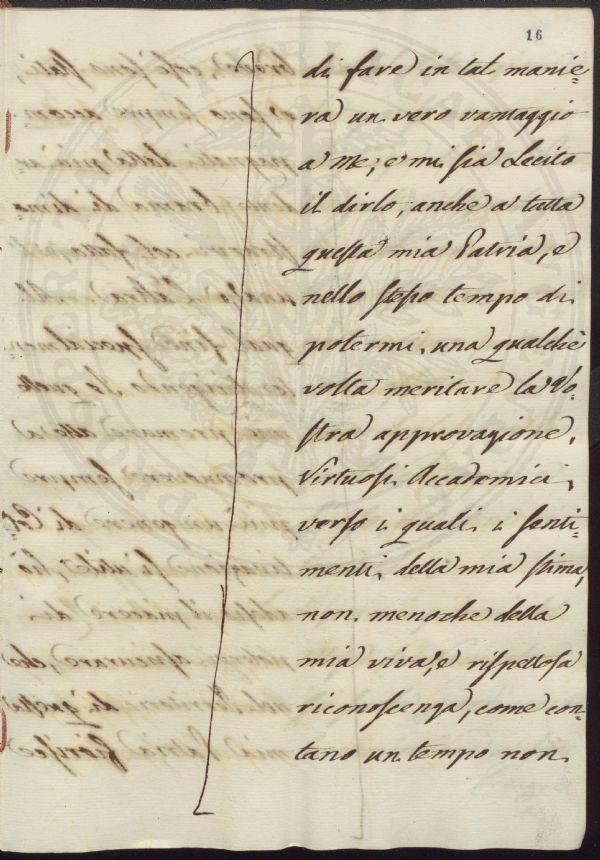 16
di fare in tal manie=
ra un vero vantaggio
a me; e mi sia lecito
il dirlo, anche a tutta
questa mia Patria, e
nello stesso tempo di
potermi una qualche
volta meritare la Vo=
stra approvazione,
Virtuosi Accademici,
verso i quali i senti=
menti della mia stima,
non menoche della
mia viva, e rispettosa
riconoscenza, come con=
tano un tempo non